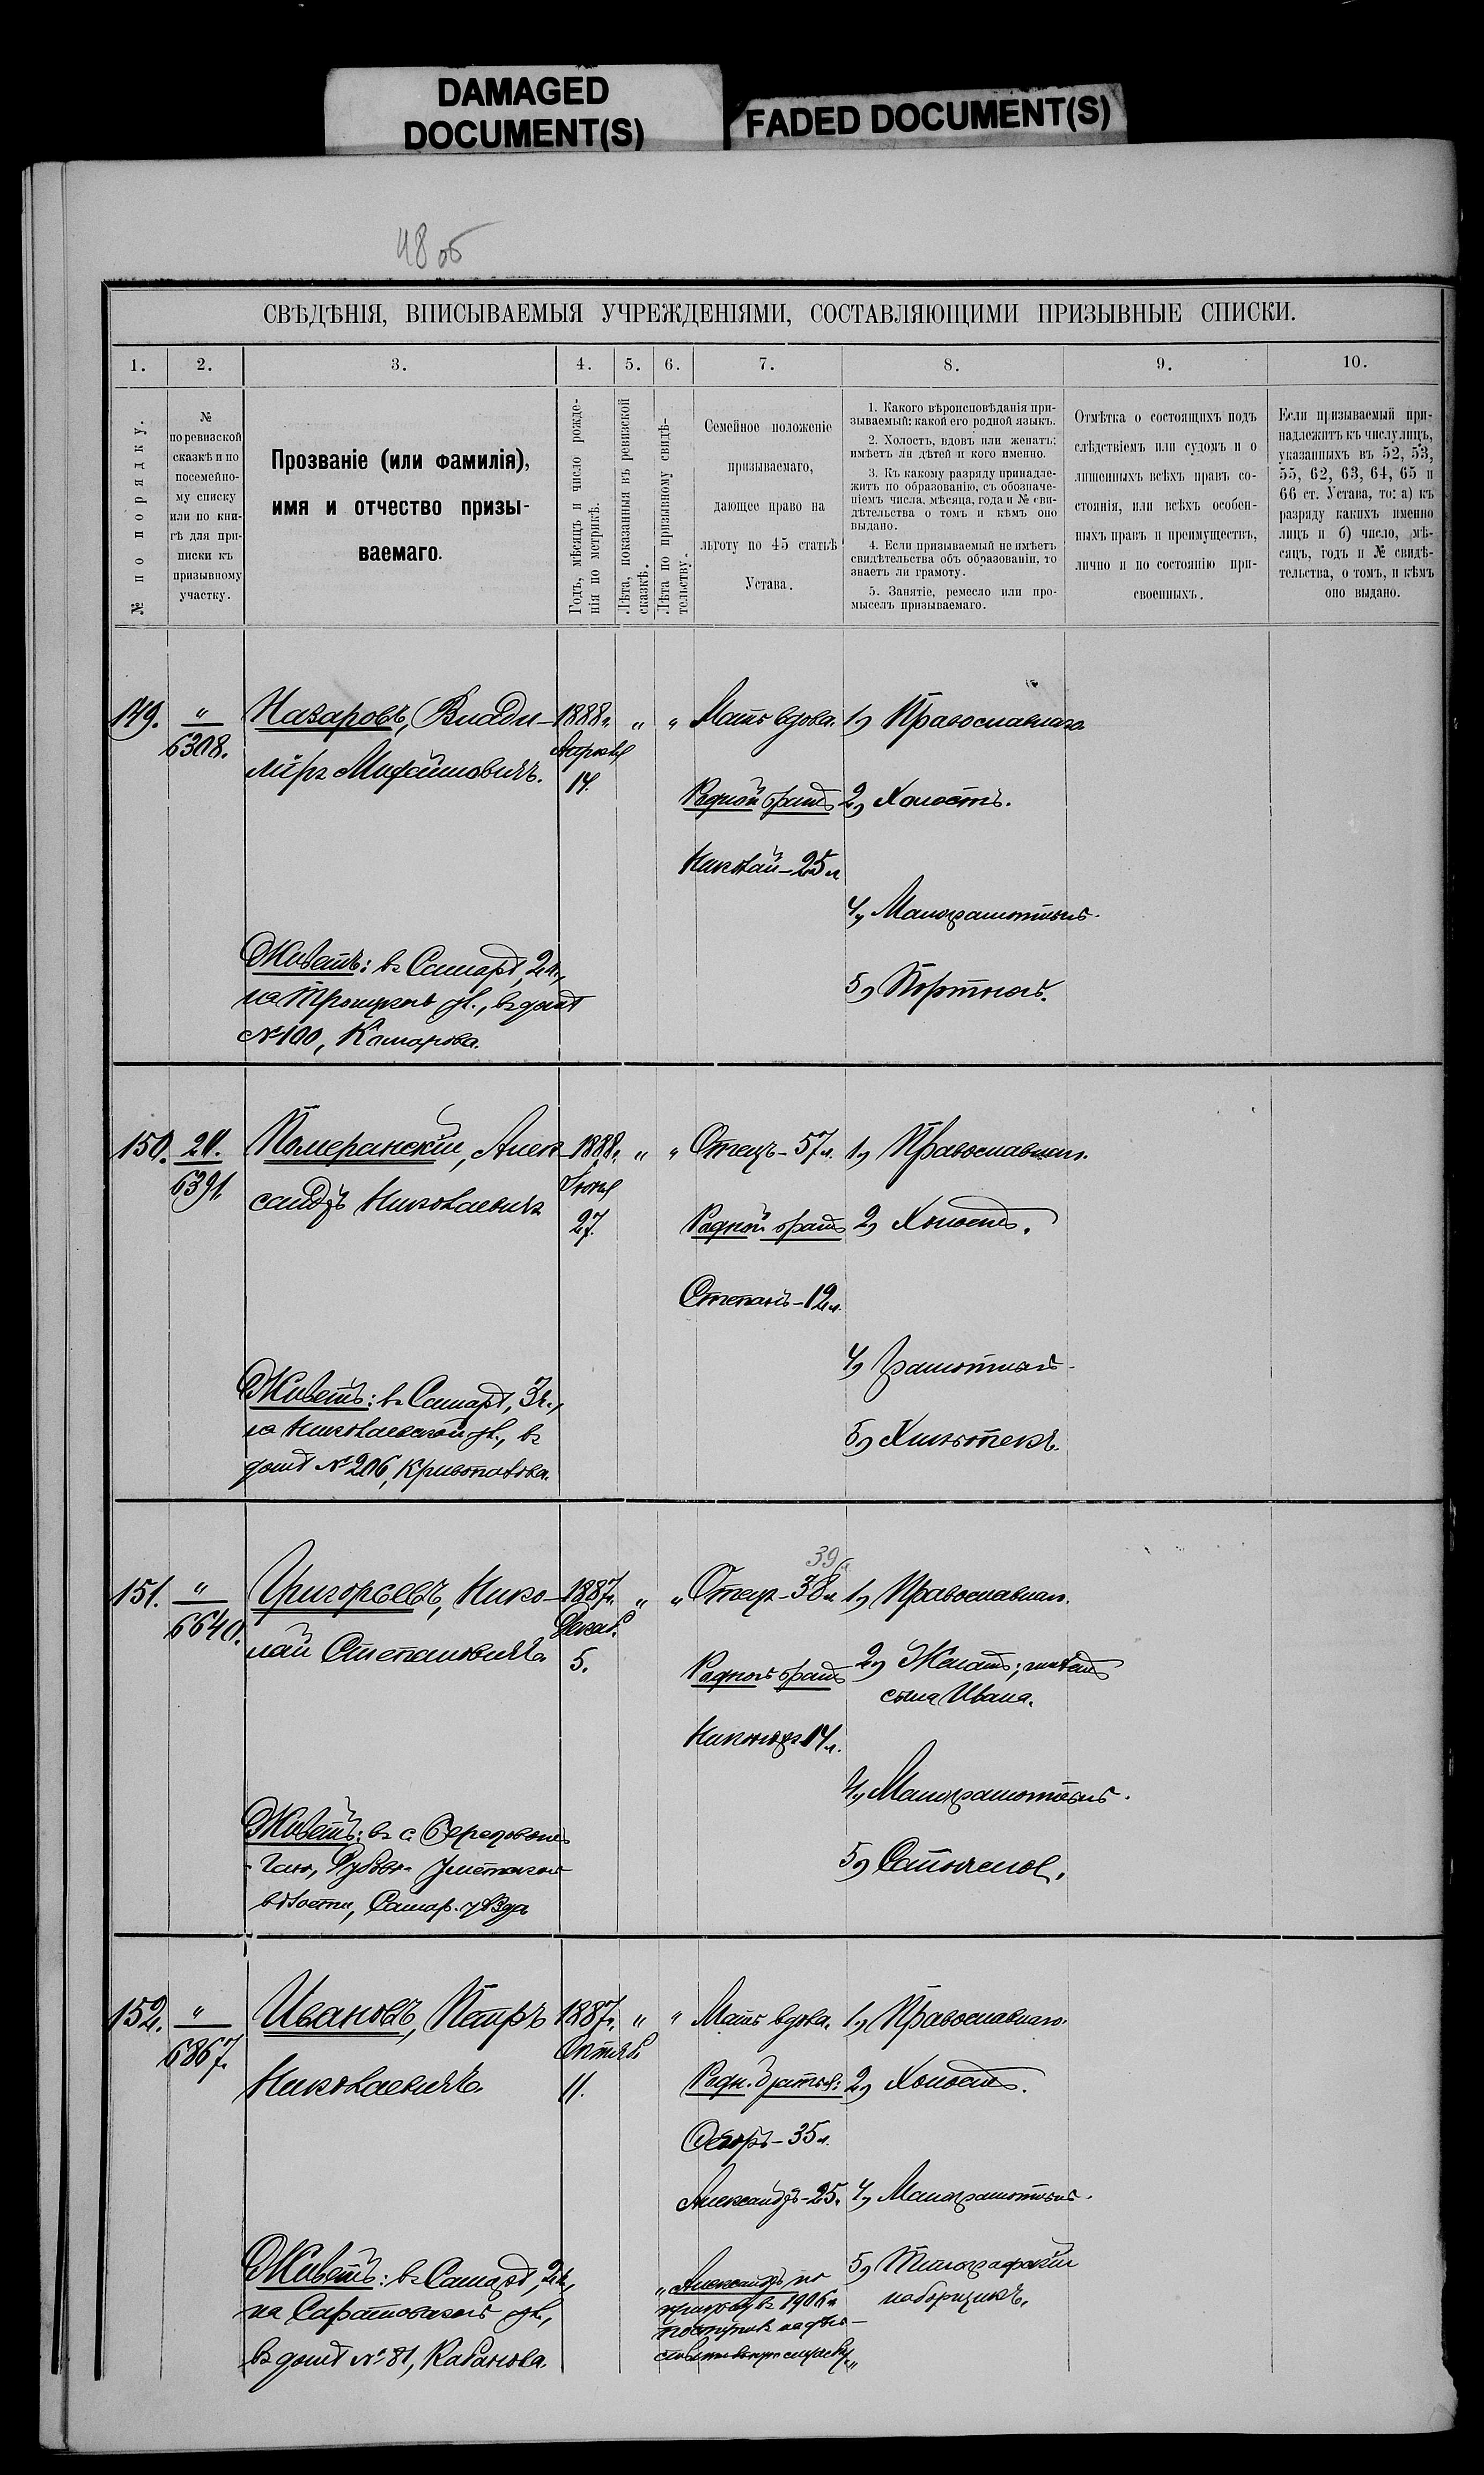 DAMAGED
DOCUMENT(S)
FADED DOCUMENT(S)
48 об
СВѢДѢНІЯ, ВПИСЫВАЕМЫЯ УЧРЕЖДЕНІЯМИ, СОСТАВЛЯЮЩИМИ ПРИЗЫВНЫЕ СПИСКИ.
1. 2. 3. 4. 5. 6. 7. 8. 9. 10.
№ по порядку.
№
по ревизской
сказкѣ и по
посемейно-
му списку
или по кни-
гѣ для при-
писки къ
призывному
участку.
Прозваніе (или фамилія),
имя и отчество призы-
ваемаго.
Годъ, мѣсяцъ и число рожде-
нія по метрикѣ.
Лѣта, показанныя въ ревизской
сказкѣ.
Лѣта по призывному свидѣ-
тельству.
Семейное положеніе
призываемаго,
дающее право на
льготу по 45 статьѣ
Устава.
1. Какого вѣроисповѣданія при-
зываемый: какой его родной языкъ.
2. Холостъ, вдовъ или женатъ:
имѣетъ ли дѣтей и кого именно.
3. Къ какому разряду принадле-
житъ по образованію, съ обозначе-
ніемъ числа, мѣсяца, года и № сви-
дѣтельства о томъ и кѣмъ оно
выдано.
4. Если призываемый не имѣетъ
свидѣтельства объ образованіи, то
знаетъ ли грамоту.
5. Занятіе, ремесло или про-
мыселъ призываемаго.
Отмѣтка о состоящихъ подъ
слѣдствіемъ или судомъ и о
лишенныхъ всѣхъ правъ со-
стоянія, или всѣхъ особен-
ныхъ правъ и преимуществъ,
лично и по состоянію при-
своенныхъ.
Если призываемый при-
надлежитъ къ числу лицъ,
указанныхъ въ 52, 53,
55, 62, 63, 64, 65 и
66 ст. Устава, то: а) къ
разряду какихъ именно
лицъ и б) число, мѣ-
сяцъ, годъ и № свидѣ-
тельства, о томъ, и кѣмъ
оно выдано.
149. " 6308.
Назаровъ, Влади-
міръ
1888г.
Апрѣля
14.
" "
Мать вдова.
Родной братъ
Николай - 25 л
1) Православнаго
2) Холостъ.
4) Малограмотный.
5) Портной.
Живетъ: въ Самарѣ, 2ч.,
на Троицкой ул., въ домѣ
№ 100, Комарова.
150. 20. 6391
Померанскій, Алек-
сандръ Николаевичъ
1888г.
Іюня
27.
" "
Отецъ - 57 л.
Родной братъ
Степанъ - 12 л.
1) Православнаго.
2) Холостъ.
4) Грамотный.
5)
Живетъ: въ Самарѣ, 3ч.,
на Николаевской ул., въ
домѣ № 206,
151. " 6640.
Григорьевъ, Нико-
лай Степановичъ
1887г.
Декаб.
5.
" "
39
Отецъ - 38 л.
Родной братъ
14 л.
1) Православнаго.
2) Женатъ; имѣетъ
сына Ивана.
4) Малограмотный.
5)
Живетъ: въ с.
волости, Самар. уѣзда
152. " 6867.
Ивановъ, Петръ
Николаевичъ.
1887г.
Октяб.
11.
" "
Мать вдова.
Родн. братья:
Ѳедоръ - 35 л.
Александръ - 25.
"Александръ по
призыву въ 1906 г
поступилъ на дѣй-
ствит. воен. службу"
1) Православнаго.
2) Холостъ.
4) Малограмотный.
5) Типографскій
наборщикъ.
Живетъ: въ Самарѣ, 2ч.,
на Саратовской ул.,
въ домѣ № 81, Кабанова.